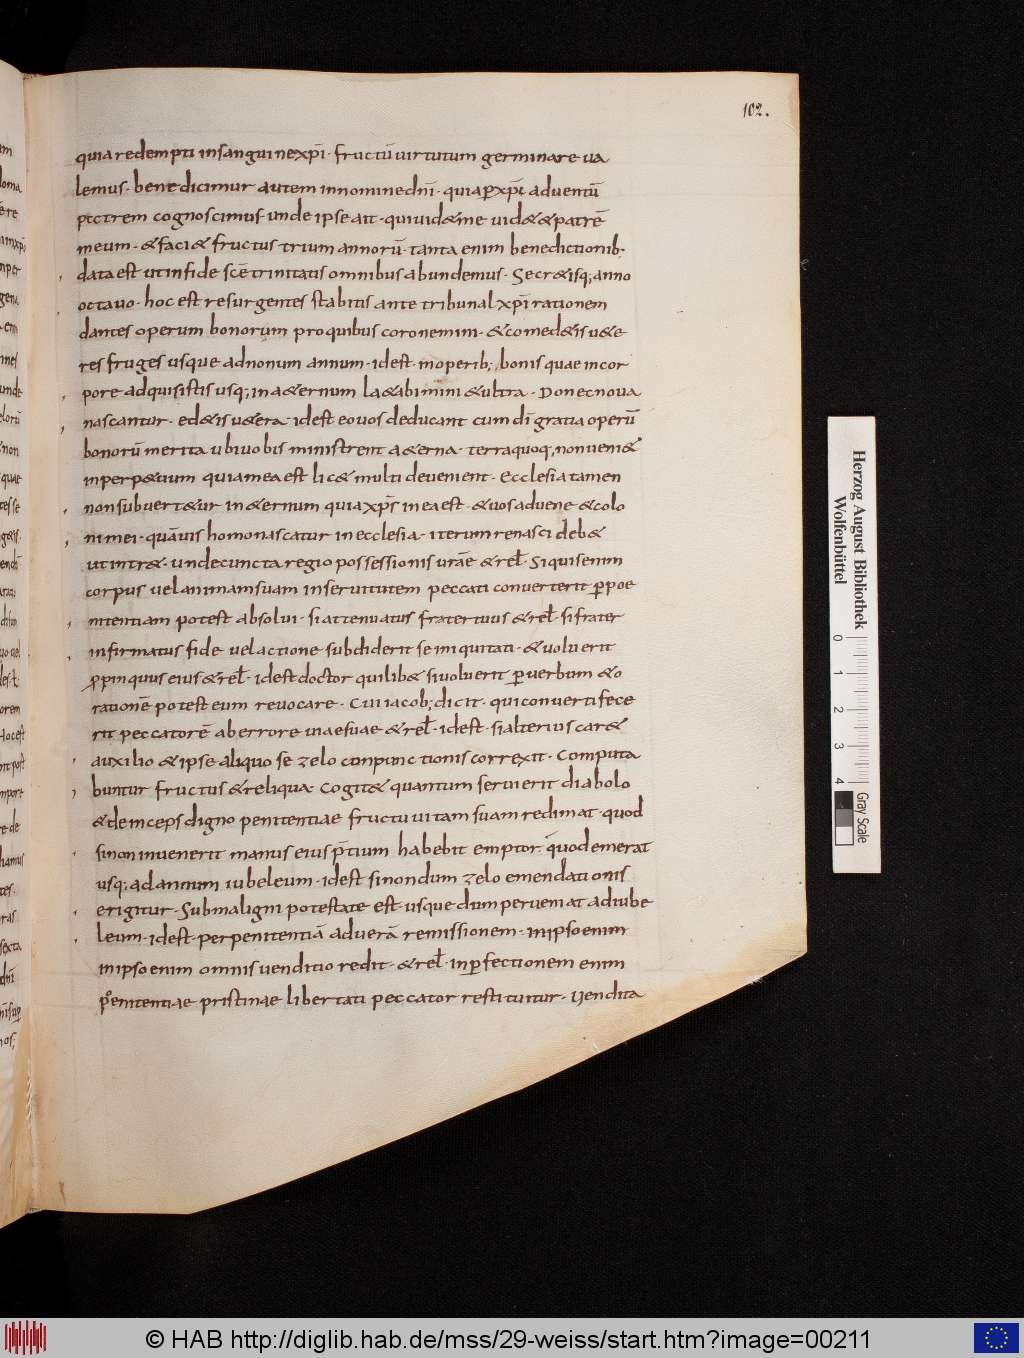 102.
quia redempti insanguinexpi̅· fructu̅ uirtutum germinare ua
lemus· benedicimur autem innominedn̅i· quiap̲xp̅i aduentu̅
pectrem cognoscimus· unde ipse ait· quiuid&me uid&&patre̅
meum· &faci& fructus trium annoru̅· tanta enim benedictionib·
data est utinfide sc̅e trinitatis omnibus abundemus· Secr&isq; anno
octauo· hoc est resurgentes stabitis ante tribunal xp̅i rationem
dantes operum bonorum proquibus coronemini· &comed&is u&e
res fruges usque adnonum annum· idest· inoperib; bonis quae incor
pore adquisistis usq; ina&ernum la&abimini &ultra· Donec noua
nascantur· ed&is u&era· idest eouos deducant cum di̅ gratia operu̅
bonoru̅ merita ubiuobis ministrent a&erna· terraquoq; nonueni&
inperp&uum quiamea est lic& multi deuenient· Ecclesia tamen
nonsubuert&ur in&ernum quia xp̅s inea est· &uos aduene &colo
ni mei· qua̅uis homo nascatur in ecclesia· iterum renasci deb&
ut intr&· unde cuncta regio possessionis ur̅ae &rel̅· Si quis enim
corpus uel animam suam in seruitutem peccati conuerterit p̲ poe
nitentiam potest absolui· si attenuatus frater tuus &rel̅· si frater
infirmatus fide uel actione subdiderit se iniquitati· &uoluerit
p̲pinquus eius &rel̅· idest doctor quilib& siuoluerit p̲ uerbum &o
ratione̅ potest eum reuocare· Cui iacob; dicit· qui conuerti fece
rit peccatore̅ ab errore uiae suae &rel̅· idest· si alterius car&
auxilio &ipse aliquo se zelo conpunctionis correxit· Computa
buntur fructus &reliqua· Cogit& quantum seruierit diabolo
&deinceps digno penitentiae fructu uitam suam redimat· quod
sinon inuenerit manus eius p̅tium habebit emptor quod emerat
usq; ad annum iubeleum· idest sinondum zelo emendationis
erigitur· Submaligni potestate est· usque dum perueniat adiube
leum· idest· per penitentia̅ aduera̅ remissionem· inipso enim
inipso enim omnis uenditio redit· &rel̅· inp̲fectionem enim
penitentiae pristinae libertati peccator restituitur· Uendita
Herzog August Bibliothek
Wolfenbüttel
0 1 2 3 4
Gray Scale
© HAB http://diglib.hab.de/mss/29-weiss/start.htm?image=00211